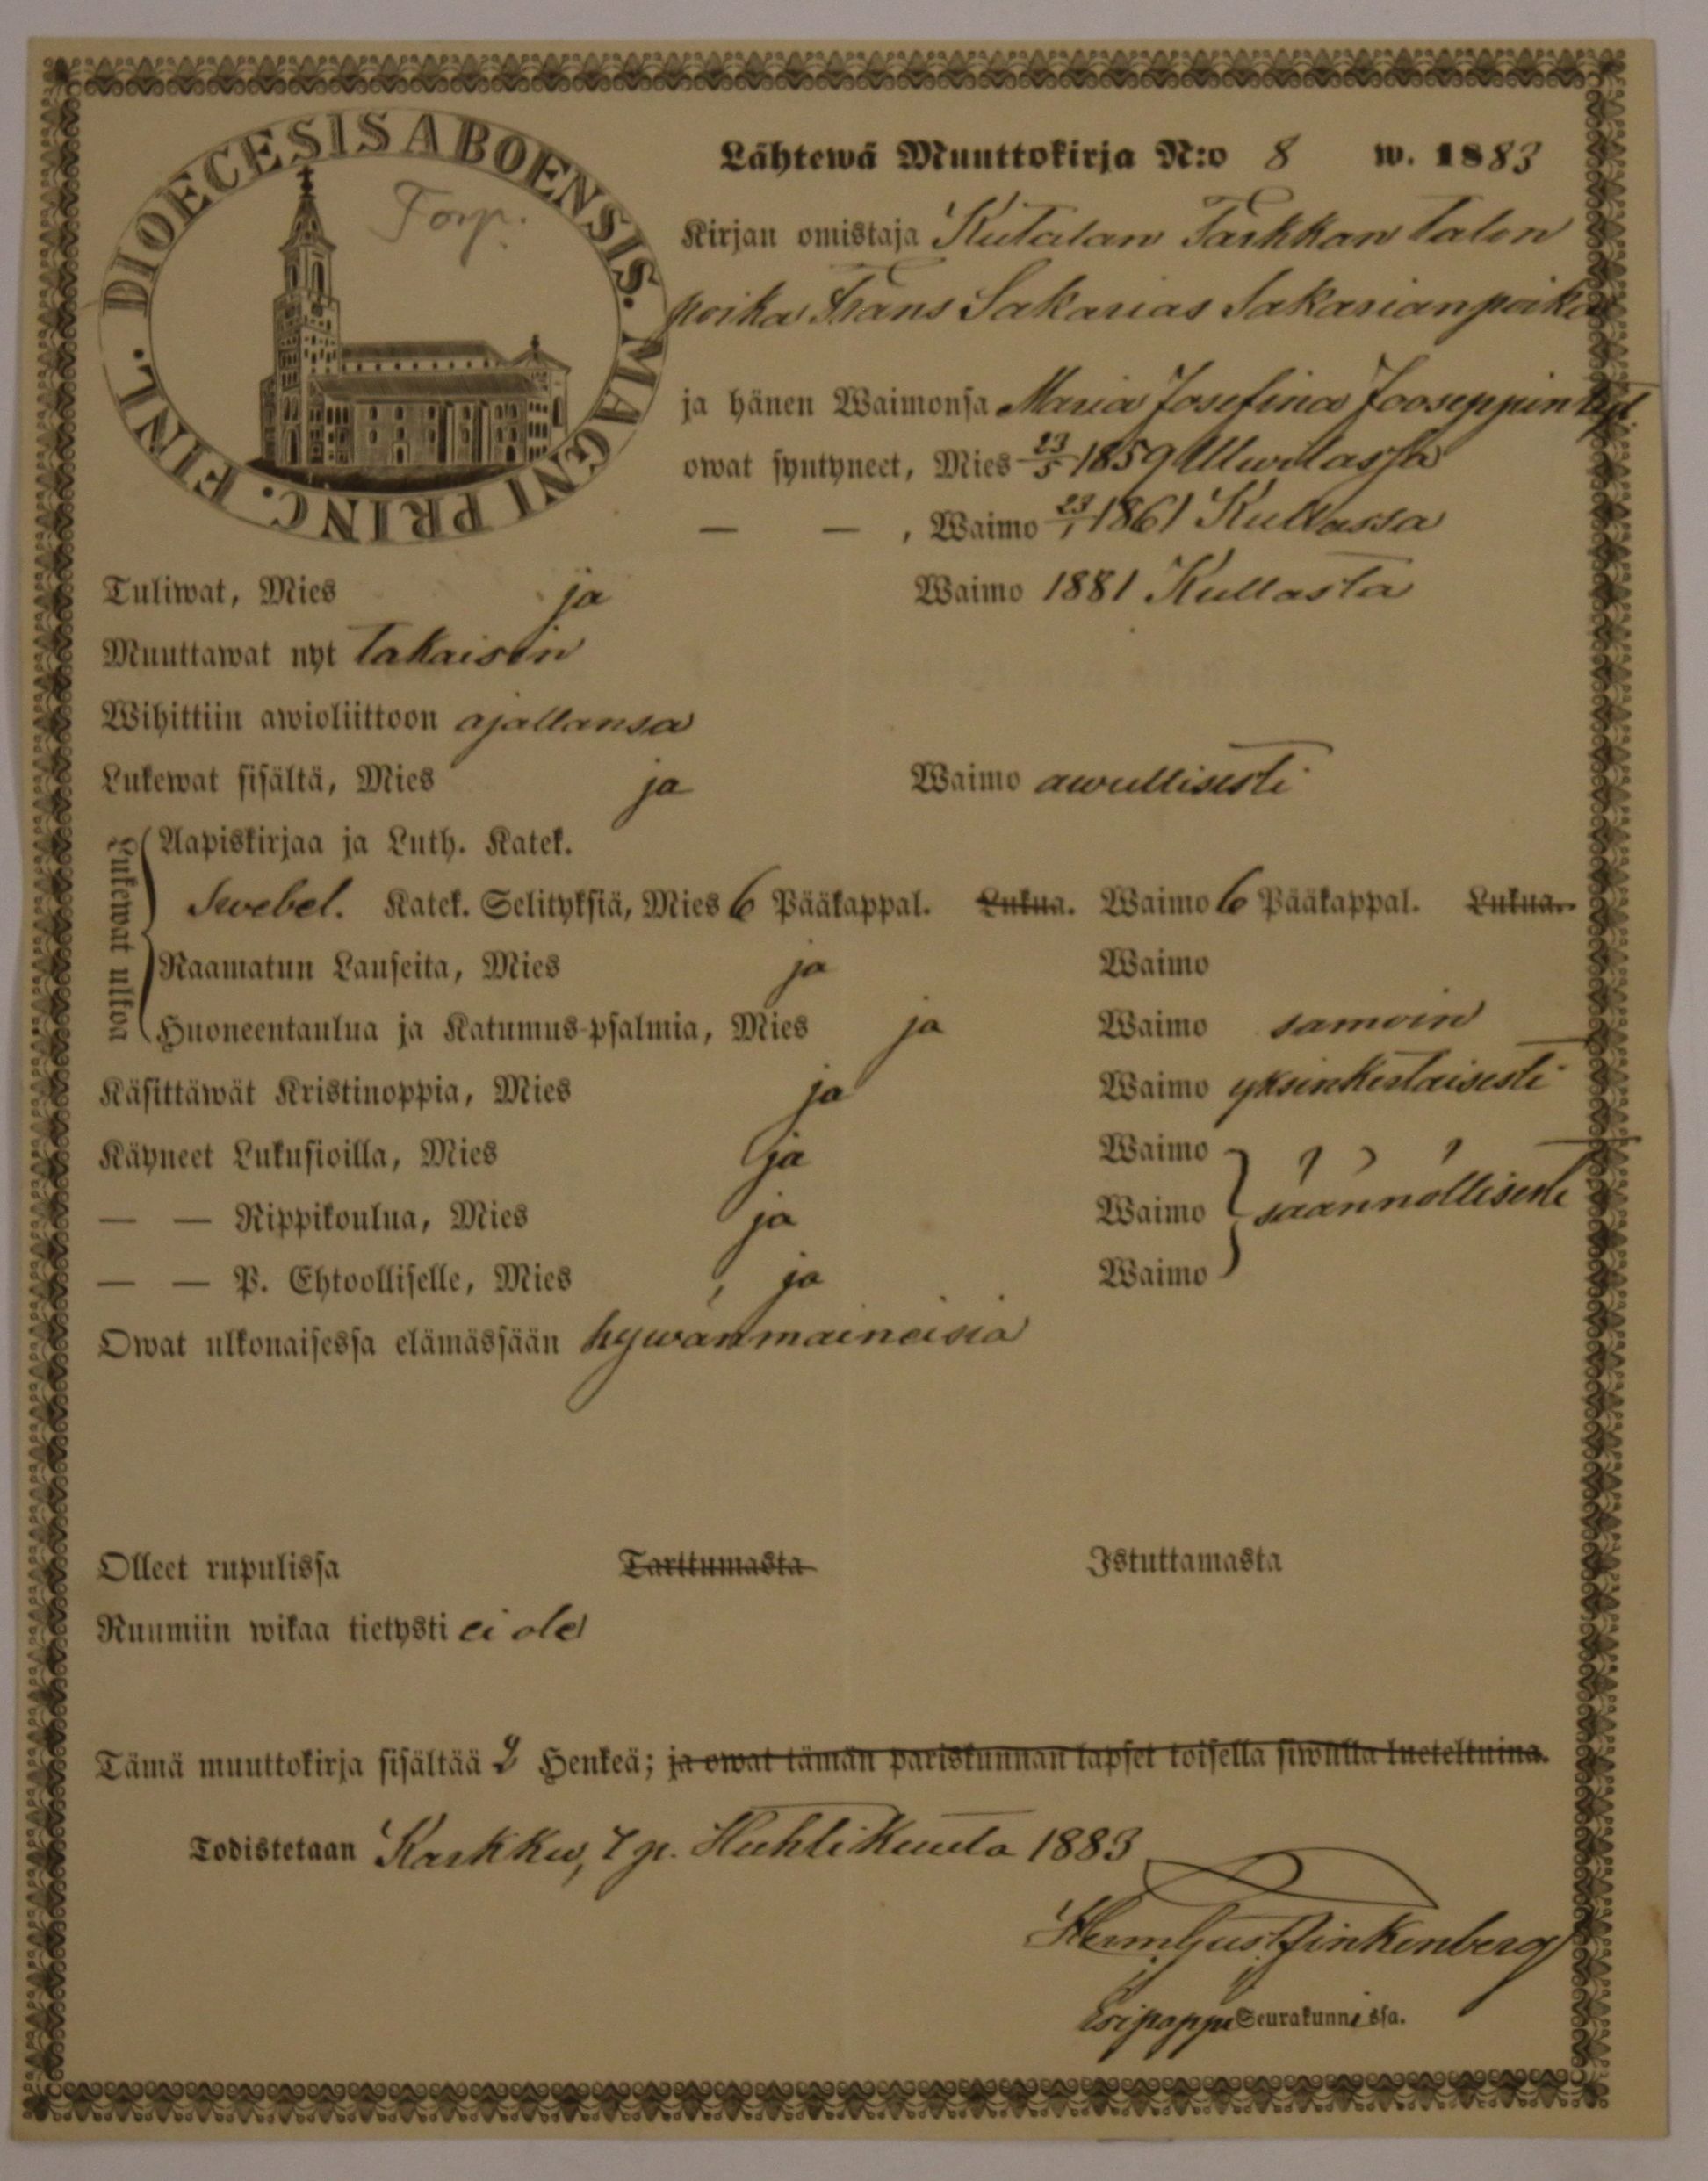 DIOECESIS ABOENSIS. MAGNI PRINC. FINL.
Torp.
Lähtewä Muuttokirja N:o 8 w. 1883
Kirjan omistaja Kutalan Tarkkan talon
poika Frans Sakarias Sakarianpoika
ja hänen Waimonsa Maria Josefina Jooseppintyt
owat syntyneet, Mies 23/5 1859 Ulwilassa
— — , Waimo 23/1 1861 Kullassa
Tuliwat, Mies ja Waimo 1881 Kullasta
Muuttawat nyt takaisin
Wihittiin awioliittoon ajallansa
Lukewat sisältä, Mies ja Waimo awullisesti
Lukewat ulkoa
Aapiskirjaa ja Luth. Katek.
Swebel. Katek. Selityksiä, Mies 6 Pääkappal. Lukua. Waimo 6 Pääkappal. Lukua.
Raamatun Lauseita, Mies ja Waimo
Huoneentaulua ja Katumus-psalmia, Mies ja Waimo samoin
Käsittäwät Kristinoppia, Mies ja Waimo yksinkertaisesti
Käyneet Lukusioilla, Mies ja Waimo
— — Rippikoulua, Mies ja Waimo säännöllisesti
— — P. Ehtoolliselle, Mies ja Waimo
Owat ulkonaisessa elämässään hywänmaineisia
Olleet rupulissa Tarttumasta Istuttamasta
Ruumiin wikaa tietysti ei ole
Tämä muuttokirja sisältää 2 Henkeä; ja owat tämän pariskunnan lapset toisella siwulla lueteltuina.
Todistetaan Karkku, 7 p. Huhtikuuta 1883
Herm Gust Finkenberg
Esipappi Seurakunnissa.